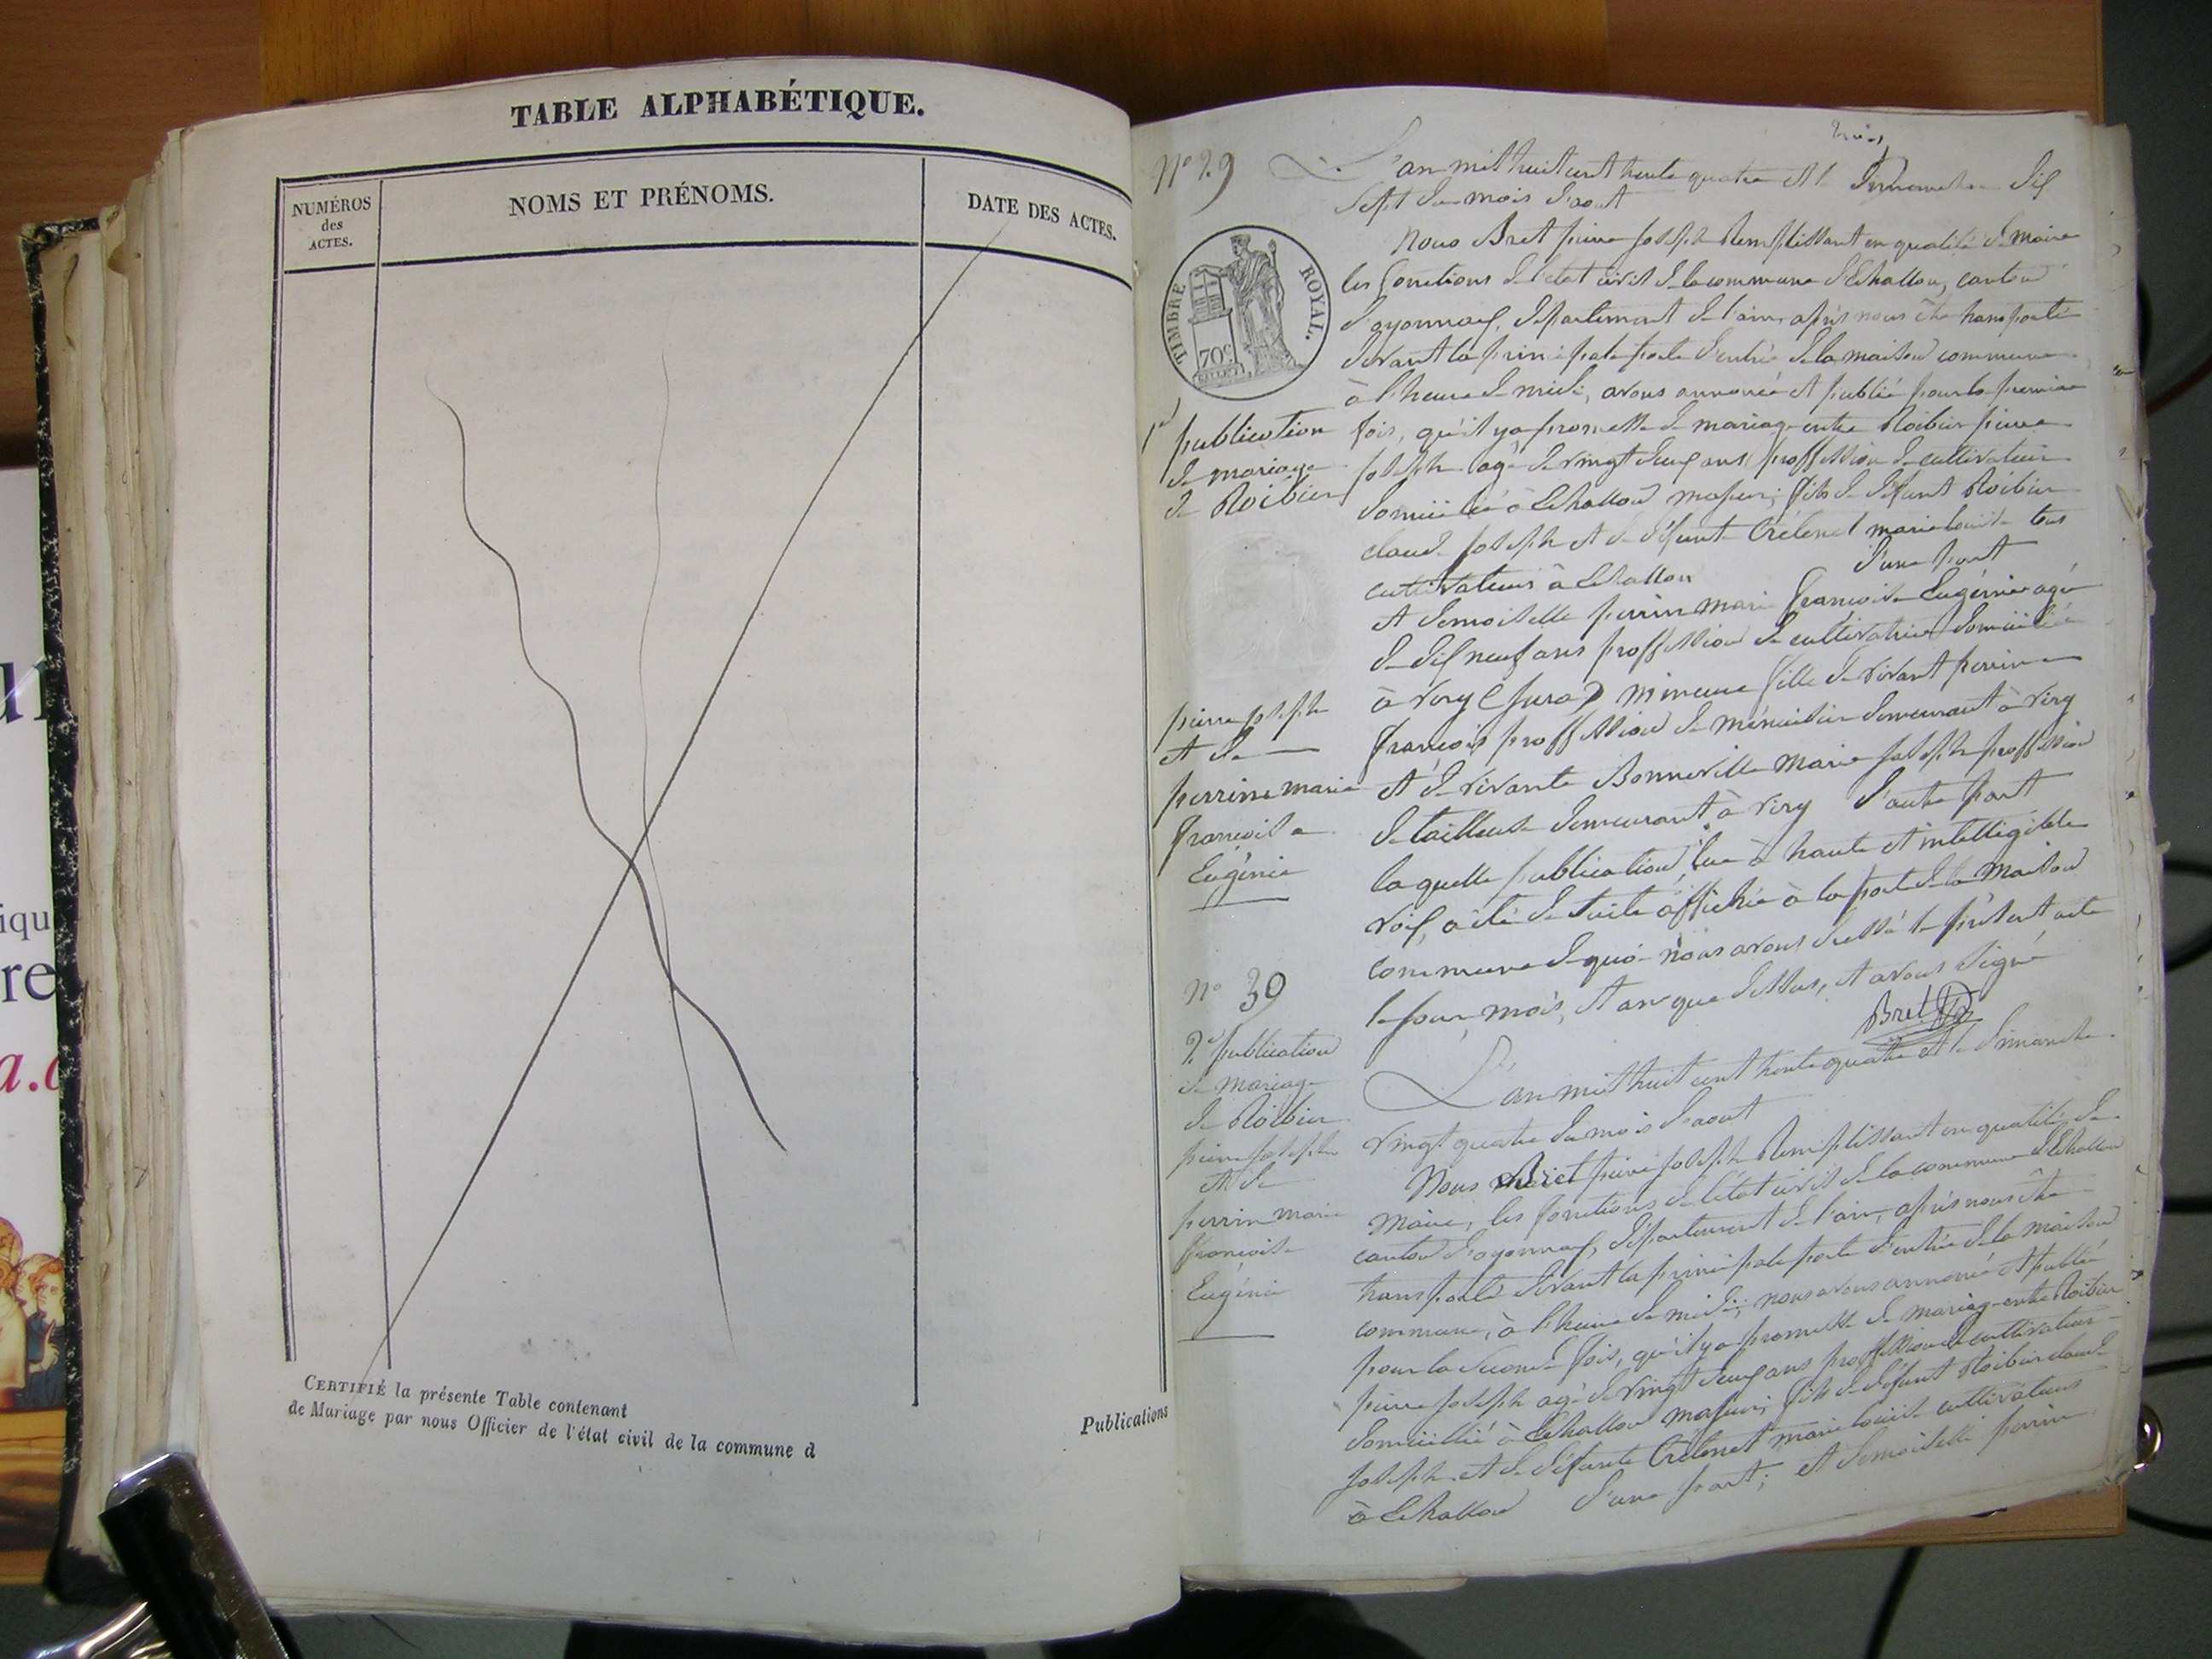 TABLE ALPHABÉTIQUE.
NUMÉROS
des
ACTES.
NOMS ET PRÉNOMS.
DATE DES ACTES.
CERTIFIÉ la présente Table contenant
Publications
de Mariage par nous Officier de l'état civil de la commune d
trois
N° 29
L'an mil huit cent trente quatre et le Dimanche dix
sept du mois d'aout
Nous Bret pierre joseph Remplissant en qualité de maire
les fonctions de l'état civil de la commune d'Echallon, canton
d'oyonnax, département de l'ain, après nous être transporté
devant la principale porte d'entrée de la maison commune
à l'heure de midi, avons annoncé et publié pour la premiere
fois, qu'il y a promesse de mariage entre Roibier pierre
joseph agé de vingt deux ans proffession de cultivateur
domicilié à Echallon majeur; fils de défunt Roibier
claude joseph et de défunte Crétenet marie louise tous
cultivateurs à Echallon d'une part
et demoiselle perrin marie françoise Eugénie agée
de dix neuf ans proffession de cultivatrice domiciliée
à viry (jura) mineure fille de vivant perrin
françois proffession de ménuisier demeurant à viry
et de vivante Bonneville marie joseph proffession
de tailleuse demeurant à viry d'autre part
laquelle publication, lue à haute et intelligible
voix, a été de suite affichée à la porte de la maison
commune de quoi nous avons dressé le présent acte
le jour, mois, et an que dessus, et avons signé
Bret
TIMBRE ROYAL.
70c
1re publication
de mariage
de Roibier
pierre joseph
et de
perrin marie
françoise
Eugénie
N° 30
2e publication
de mariage
de Roibier
pierre joseph
et de
perrin marie
françoise
Eugénie
L'an mil huit cent trente quatre et le dimanche
vingt quatre du mois d'aout
Nous Bret pierre joseph Remplissant en qualité de
maire, les fonctions de l'état civil de la commune d'Echallon
canton d'oyonnax, département de l'ain, après nous être
transporté devant la principale porte d'entrée de la maison
commune, à l'heure de midi; nous avons annoncé et publié
pour la seconde fois, qu'il y a promesse de mariage entre Roibier
pierre joseph agé de vingt deux ans proffession de cultivateur
domicillié à Echallon majeur; fils de défunt Roibier claude
joseph et de défunte Crétenet marie louise cultivateurs
à Echallon d'une part; et demoiselle perrin